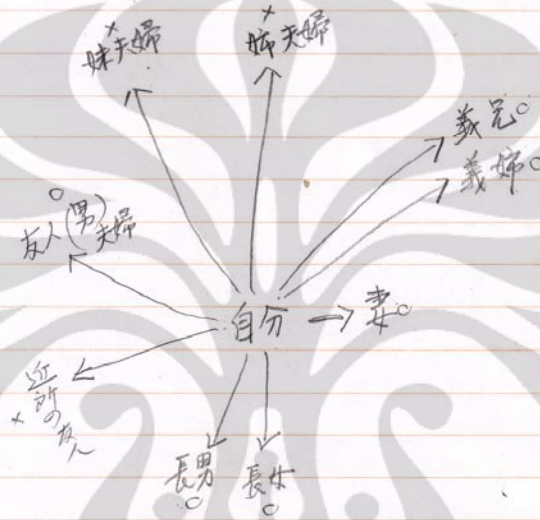 ×
妹夫婦
×
姉夫婦
義兄○
義姉○
○
友人(男)夫婦
自分
妻○
近所の友人
×
長男
○
長女
○